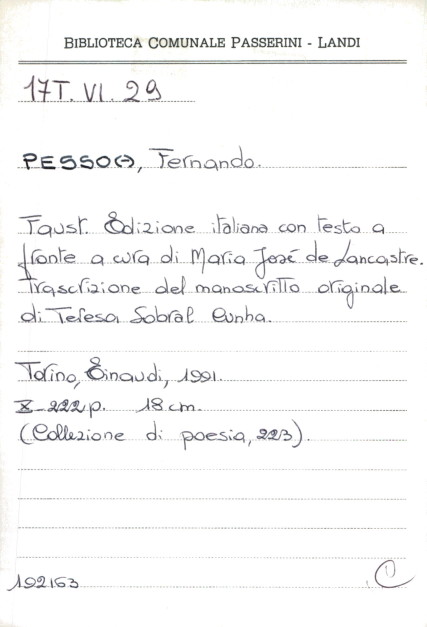 BIBLIOTECA COMUNALE PASSERINI - LANDI
17T. VI. 29
PESSOA, Fernando.
Faust. Edizione italiana con testo a
fronte a cura di Maria José de Lancastre.
Trascrizione del manoscritto originale
di Teresa Sobral Cunha.
Torino, Einaudi, 1991.
X-222 p. 18 cm.
(Collezione di poesia, 223).
192163